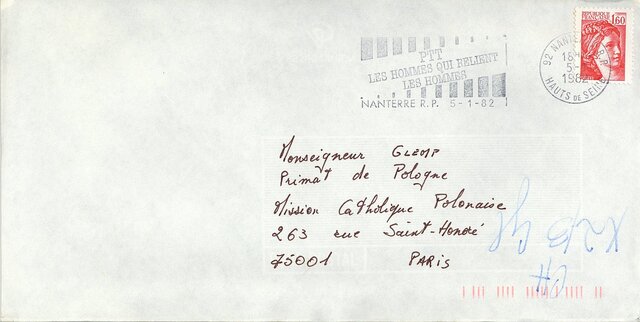 REPUBLIQUE FRANÇAISE
1,60
PTT
LES HOMMES QUI RELIENT
LES HOMMES
NANTERRE R.P. 5-1-82
92 NANTERRE R.P.
18H
5-
1982
HAUTS DE SEINE
Monseigneur GLEMP
Primat de Pologne
Mission Catholique Polonaise
263 rue Saint-Honoré
75001 PARIS
CH